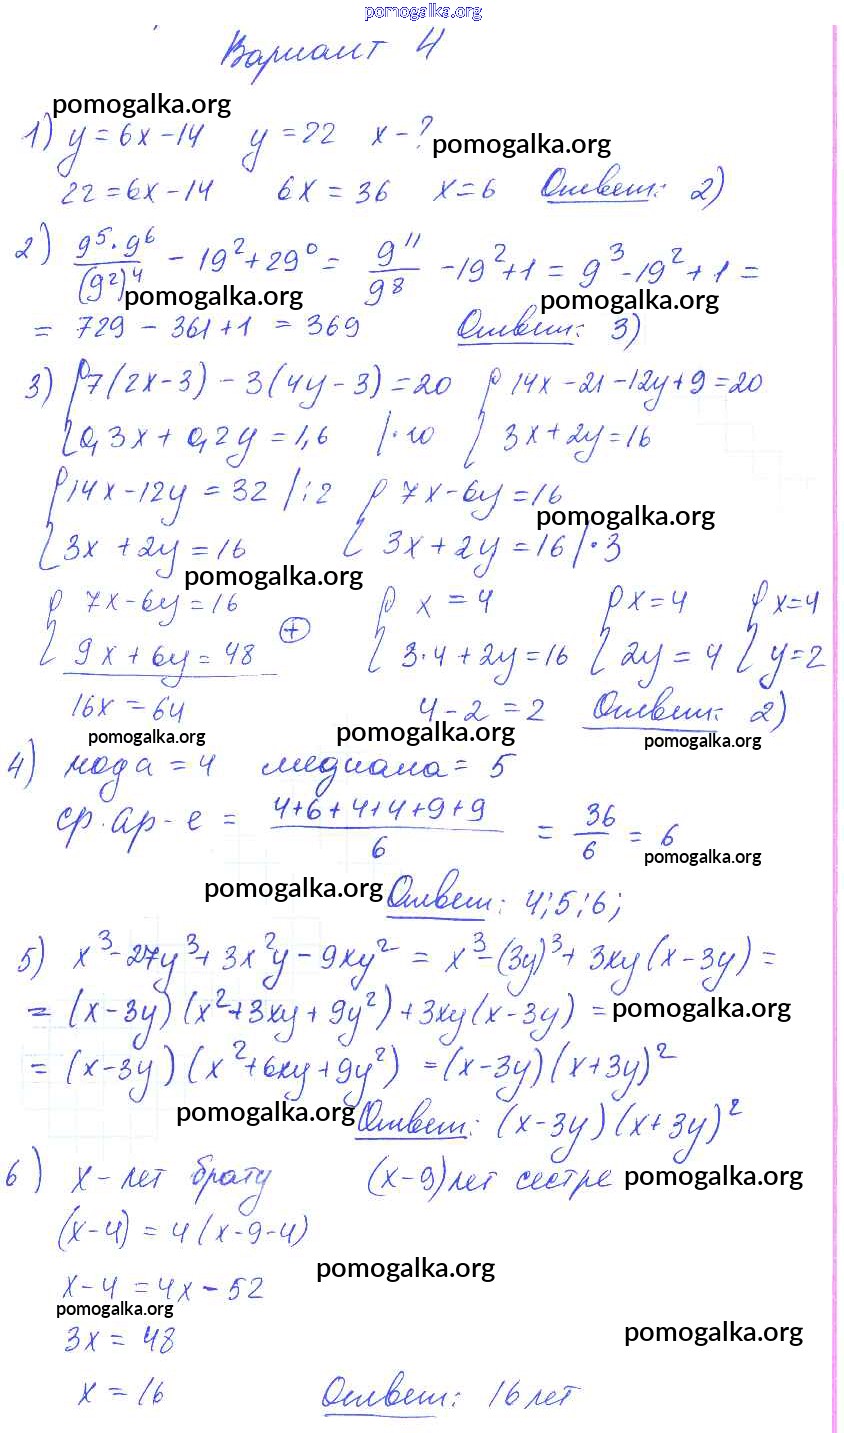 pomogalka.org
Вариант 4
pomogalka.org
1) y = 6x - 14   y = 22   x - ?
pomogalka.org
22 = 6x - 14   6x = 36   x = 6   Ответ: 2)
2) (9⁵·9⁶)/(9²)⁴ - 19² + 29⁰ = 9¹¹/9⁸ - 19² + 1 = 9³ - 19² + 1 =
pomogalka.org   pomogalka.org
= 729 - 361 + 1 = 369   Ответ: 3)
3) { 7(2x - 3) - 3(4y - 3) = 20   { 14x - 21 - 12y + 9 = 20
{ 0,3x + 0,2y = 1,6   |·10   { 3x + 2y = 16
{ 14x - 12y = 32 |:2   { 7x - 6y = 16
pomogalka.org
{ 3x + 2y = 16   { 3x + 2y = 16 |·3
pomogalka.org
{ 7x - 6y = 16   ⊕   { x = 4   { x = 4   { x = 4
{ 9x + 6y = 48   { 3·4 + 2y = 16   { 2y = 4   { y = 2
16x = 64   4 - 2 = 2   Ответ: 2)
pomogalka.org   pomogalka.org   pomogalka.org
4) мода = 4   медиана = 5
ср. ар-е = (4+6+4+4+9+9)/6 = 36/6 = 6
pomogalka.org
pomogalka.org   Ответ: 4; 5; 6;
5) x³ - 27y³ + 3x²y - 9xy² = x³ - (3y)³ + 3xy(x - 3y) =
= (x - 3y)(x² + 3xy + 9y²) + 3xy(x - 3y) = pomogalka.org
= (x - 3y)(x² + 6xy + 9y²) = (x - 3y)(x + 3y)²
pomogalka.org   Ответ: (x - 3y)(x + 3y)²
6) x - лет брату   (x - 9) лет сестре   pomogalka.org
(x - 4) = 4(x - 9 - 4)
pomogalka.org
x - 4 = 4x - 52
pomogalka.org
3x = 48   pomogalka.org
x = 16   Ответ: 16 лет